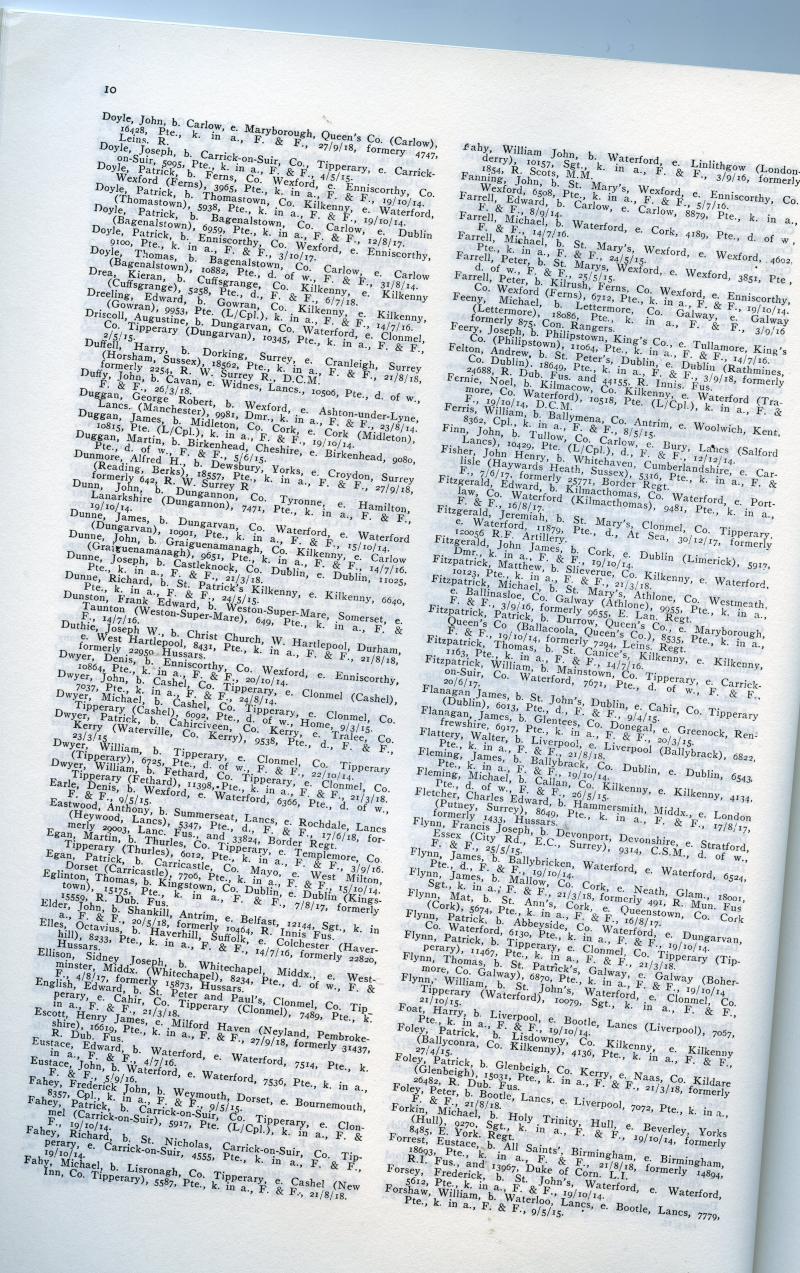 10
Doyle, John, b. Carlow, e. Maryborough, Queen's Co. (Carlow),
16428, Pte., k. in a., F. & F., 27/9/18, formery 4747,
Leins. R.
Doyle, Joseph, b. Carrick-on-Suir, Co., Tipperary, e. Carrick-
on-Suir, 5095, Pte., k. in a., F. & F., 4/5/15.
Doyle, Patrick, b. Ferns, Co. Wexford, e. Enniscorthy, Co.
Wexford (Ferns), 3965, Pte., k. in a., F. & F., 19/10/14.
Doyle, Patrick, b. Thomastown, Co. Kilkenny, e. Waterford,
(Thomastown), 5938, Pte., k. in a., F. & F., 19/10/14.
Doyle, Patrick, b. Bagenalstown, Co. Carlow, e. Dublin
(Bagenalstown), 6959, Pte., k. in a., F. & F., 12/8/17.
Doyle, Patrick, b. Enniscorthy, Co. Wexford, e. Enniscorthy,
9100, Pte., k. in a., F. & F., 3/10/17.
Doyle, Thomas, b. Bagenalstown, Co. Carlow, e. Carlow
(Bagenalstown), 10882, Pte., d. of w., F. & F., 31/8/14.
Drea, Kieran, b. Cuffsgrange, Co. Kilkenny, e. Kilkenny
(Cuffsgrange), 5258, Pte., d., F. & F., 6/7/18.
Dreeling, Edward, b. Gowran, Co. Kilkenny, e. Kilkenny,
(Gowran), 9953, Pte. (L/Cpl.), k. in a., F. & F., 14/7/16.
Driscoll, Augustine, b. Dungarvan, Co. Waterford, e. Clonmel,
Co. Tipperary (Dungarvan), 10345, Pte., k. in a., F. & F.,
2/5/15.
Duffell, Harry, b. Dorking, Surrey, e. Cranleigh, Surrey
(Horsham, Sussex), 18562, Pte., k. in a., F. & F., 21/8/18,
formerly 2254, R. W. Surrey R., D.C.M.
Duffy, John, b. Cavan, e. Widnes, Lancs., 10506, Pte., d. of w.,
F. & F., 26/3/18.
Duggan, George Robert, b. Wexford, e. Ashton-under-Lyne,
Lancs. (Manchester), 9981, Dmr., k. in a., F. & F., 23/8/14.
Duggan, James, b. Midleton, Co. Cork, e. Cork (Midleton),
10815, Pte. (L/Cpl.), k. in a., F. & F., 19/10/14.
Duggan, Martin, b. Birkenhead, Cheshire, e. Birkenhead, 9080,
Pte., d. of w., F. & F., 5/6/15.
Dunmore, Alfred H., b. Dewsbury, Yorks, e. Croydon, Surrey
(Reading, Berks), 18557, Pte., k. in a., F. & F., 27/9/18,
formerly 642, R. W. Surrey R
Dunn, John, b. Dungannon, Co. Tyronne, e. Hamilton,
Lanarkshire (Dungannon), 7471, Pte., k. in a., F. & F.,
19/10/14.
Dunne, James, b. Dungarvan, Co. Waterford, e. Waterford
(Dungarvan), 10901, Pte., k. in a., F. & F., 15/10/14.
Dunne, John, b. Graiguenamanagh, Co. Kilkenny, e. Carlow
(Graiguenamanagh), 9651, Pte., k. in a., F. & F., 14/7/16.
Dunne, Joseph, b. Castleknock, Co. Dublin, e. Dublin, 11025,
Pte., k. in a., F. & F., 21/3/18.
Dunne, Richard, b. St. Patrick's Kilkenny, e. Kilkenny, 6640,
Pte., k. in a., F. & F., 24/5/15.
Dunston, Frank Edward, b. Weston-Super-Mare, Somerset, e.
Taunton (Weston-Super-Mare), 649, Pte., k. in a., F. &
F., 14/7/16.
Duthie, Joseph W., b. Christ Church, W. Hartlepool, Durham,
e. West Hartlepool, 8431, Pte., k. in a., F. & F., 21/8/18,
formerly 22950 Hussars.
Dwyer, Denis, b. Enniscorthy, Co. Wexford, e. Enniscorthy,
10864, Pte., k. in a., F. & F., 20/10/14.
Dwyer, John, b. Cashel, Co. Tipperary, e. Clonmel (Cashel),
7037, Pte., k. in a., F. & F., 24/8/14.
Dwyer, Michael, b. Cashel, Co. Tipperary, e. Clonmel, Co.
Tipperary (Cashel), 6092, Pte., d. of w., Home, 9/3/15.
Dwyer, Patrick, b. Cahirciveen, Co. Kerry, e. Tralee, Co.
Kerry (Waterville, Co. Kerry), 9538, Pte., d., F. & F.,
23/3/15
Dwyer, William, b. Tipperary, e. Clonmel, Co. Tipperary
(Tipperary), 6725, Pte., d. of w., F. & F., 22/10/14.
Dwyer, William, b. Fethard, Co. Tipperary, e. Clonmel, Co.
Tipperary (Fethard), 11398, Pte., k. in a., F. & F., 21/3/18.
Earle, Denis, b. Wexford, e. Waterford, 6366, Pte., d. of w.,
F. & F., 9/5/15.
Eastwood, Anthony, b. Summerseat, Lancs, e. Rochdale, Lancs
(Heywood, Lancs), 5347, Pte., d., F. & F., 17/6/18, for-
merly 29003, Lanc. Fus., and 33824, Border Regt.
Egan, Martin, b. Thurles, Co. Tipperary, e. Templemore, Co.
Tipperary (Thurles), 6012, Pte., k. in a., F. & F., 3/9/16.
Egan, Patrick, b. Carricastle, Co. Mayo, e. West Milton,
Dorset (Carricastle), 7706, Pte., k. in a., F. & F., 15/10/14.
Eglinton, Thomas, b. Kingstown, Co. Dublin, e. Dublin (Kings-
town), 15175, Pte., k. in a., F. & F., 7/8/17, formerly
15559, R. Dub. Fus.
Elder, John, b. Shankill, Antrim, e. Belfast, 12144, Sgt., k. in
a., F. & F., 20/5/18, formerly 10464, R. Innis Fus.
Elles, Octavius, b. Haverhill, Suffolk, e. Colchester (Haver-
hill), 8233, Pte., k. in a., F. & F., 14/7/16, formerly 22820,
Hussars.
Ellison, Sidney Joseph, b. Whitechapel, Middx., e. West-
minster, Middx. (Whitechapel), 8234, Pte., d. of w., F. &
F., 4/8/17, formerly 15873, Hussars.
English, Edward, b. St. Peter and Paul's, Clonmel, Co. Tip-
perary, e. Cahir, Co. Tipperary (Clonmel), 7489, Pte., k.
in a., F. & F., 21/3/18.
Escott, Henry James, e. Milford Haven (Neyland, Pembroke-
shire), 16619, Pte., k. in a., F. & F., 27/9/18, formerly 31437,
R. Dub. Fus.
Eustace, Edward, b. Waterford, e. Waterford, 7514, Pte., k.
in a., F. & F., 4/7/16.
Eustace, John, b. Waterford, e. Waterford, 7536, Pte., k. in a.,
F. & F., 5/9/16.
Fahey, Frederick John, b. Weymouth, Dorset, e. Bournemouth,
8357, Cpl., k. in a., F. & F., 9/5/15.
Fahey, Patrick, b. Carrick-on-Suir, Co. Tipperary, e. Clon-
mel (Carrick-on-Suir), 5917, Pte. (L/Cpl.), k. in a., F. &
F., 19/10/14.
Fahey, Richard, b. St. Nicholas, Carrick-on-Suir, Co. Tip-
perary, e. Carrick-on-Suir, 4555, Pte., k. in a., F. & F.,
19/10/14.
Fahy, Michael, b. Lisronagh, Co. Tipperary, e. Cashel (New
Inn, Co. Tipperary), 5587, Pte., k. in a., F. & F., 21/8/18.
Fahy, William John, b. Waterford, e. Linlithgow (London-
derry), 10157, Sgt., k. in a., F. & F., 3/9/16, formerly
1854, R. Scots, M.M.
Fanning, John, b. St. Mary's, Wexford, e. Enniscorthy, Co.
Wexford, 6508, Pte., k. in a., F. & F., 5/7/16.
Farrell, Edward, b. Carlow, e. Carlow, 8879, Pte., k. in a.,
F. & F., 8/9/14.
Farrell, Michael, b. Waterford, e. Cork, 4189, Pte., d. of w,
F. & F., 14/7/16.
Farrell, Michael, b. St. Mary's, Wexford, e. Wexford, 4602,
Pte., k. in a., F. & F., 24/5/15.
Farrell, Peter, b. St. Marys, Wexford, e. Wexford, 3851, Pte,
d. of w., F. & F., 25/5/15.
Farrell, Peter, b. Kilrush, Ferns, Co. Wexford, e. Enniscorthy,
Co. Wexford (Ferns), 6712, Pte., k. in a., F. & F., 19/10/14.
Feeny, Michael, b. Lettermore, Co. Galway, e. Galway
(Lettermore), 18086, Pte., k. in a., F. & F., 3/9/16
formerly 875, Con. Rangers.
Feery, Joseph, b. Philipstown, King's Co., e. Tullamore, King's
Co. (Philipstown), 11064, Pte., k. in a., F. & F., 14/7/16.
Felton, Andrew, b. St. Peter's, Dublin, e. Dublin (Rathmines,
Co. Dublin), 18649, Pte., k. in a., F. & F., 3/9/18, formerly
24688, R. Dub. Fus. and 44155, R. Innis. Fus.
Fernie, Noel, b. Kilmacow, Co. Kilkenny, e. Waterford (Tra-
more, Co. Waterford), 10518, Pte. (L/Cpl.), k. in a., F. &
F., 19/10/14, D.C.M.
Ferris, William, b. Ballymena, Co. Antrim, e. Woolwich, Kent,
8362, Cpl., k. in a., F. & F., 8/5/15.
Finn, John, b. Tullow, Co. Carlow, e. Bury, Lancs (Salford
Lancs), 10429, Pte. (L/Cpl.), d., F. & F., 12/12/14.
Fisher, John Henry, b. Whitehaven, Cumberlandshire, e. Car-
lisle (Haywards Heath, Sussex), 5316, Pte., k. in a., F. &
F., 7/6/17, formerly 25771, Border Regt.
Fitzgerald, Edward, b. Kilmacthomas, Co. Waterford, e. Port-
law, Co. Waterford (Kilmacthomas), 9481, Pte., k. in a.,
F. & F., 16/8/17.
Fitzgerald, Jeremiah, b. St. Mary's, Clonmel, Co. Tipperary,
e. Waterford, 11879, Pte., d., At Sea, 30/12/17, formerly
120056 R.F. Artillery.
Fitzgerald, John James, b. Cork, e. Dublin (Limerick), 5917,
Dmr., k. in a., F. & F., 19/10/14.
Fitzpatrick, Matthew, b. Slieverue, Co. Kilkenny, e. Waterford,
10123, Pte., k. in a., F. & F., 21/3/18.
Fitzpatrick, Michael, b. St. Mary's, Athlone, Co. Westmeath,
e. Ballinasloe, Co. Galway (Athlone), 9955, Pte., k. in a.,
F. & F., 3/9/16, formerly 9655, E. Lan. Regt.
Fitzpatrick, Patrick, b. Durrow, Queen's Co., e. Maryborough,
Queen's Co (Ballacoola, Queen's Co.), 8535, Pte., k. in a.,
F. & F., 19/10/14, formerly 7294, Leins. Regt.
Fitzpatrick, Thomas, b. St. Canice's, Kilkenny, e. Kilkenny,
1163, Pte., k. in a., F. & F., 14/7/16.
Fitzpatrick, William, b. Mainstown, Co. Tipperary, e. Carrick-
on-Suir, Co. Waterford, 7671, Pte., d. of w., F. & F.,
20/6/17.
Flanagan James, b. St. John's, Dublin, e. Cahir, Co. Tipperary
(Dublin), 6013, Pte., d., F. & F., 9/4/15.
Flanagan, James, b. Glentees, Co. Donegal, e. Greenock, Ren-
frewshire, 6917, Pte., k. in a., F. & F., 20/3/15.
Flattery, Walter, b. Liverpool, e. Liverpool (Ballybrack), 6822,
Pte., k. in a., F. & F., 21/8/18.
Fleming, James, b. Ballybrack, Co. Dublin, e. Dublin, 6543,
Pte., k. in a., F. & F., 19/10/14.
Fleming, Michael, b. Callan, Co. Kilkenny, e. Kilkenny, 4134,
Pte., d. of w., F. & F., 26/5/15.
Fletcher, Charles Edward, b. Hammersmith, Middx., e. London
(Putney, Surrey), 8649, Pte., k. in a., F. & F., 17/8/17,
formerly 1433, Hussars.
Flynn, Francis Joseph, b. Devonport, Devonshire, e. Stratford,
Essex (City Rd., E.C., Surrey), 9314, C.S.M., d. of w.,
F. & F., 25/5/15.
Flynn, James, b. Ballybricken, Waterford, e. Waterford, 6524,
Pte., d., F. & F., 19/10/14.
Flynn, James, b. Mallow, Co. Cork, e. Neath, Glam., 18001,
Sgt., k. in a., F. & F., 21/3/18, formerly 491, R. Mun. Fus
Flynn, Mat, b. St. Ann's, Cork, e. Queenstown, Co. Cork
(Cork), 5674, Pte., k. in a., F. & F., 16/8/17.
Flynn, Patrick, b. Abbeyside, Co. Waterford, e. Dungarvan,
Co. Waterford, 6130, Pte., k. in a., F. & F., 19/10/14.
Flynn, Patrick, b. Tipperary, e. Clonmel, Co. Tipperary (Tip-
perary), 11467, Pte., k. in a., F. & F., 21/3/18.
Flynn, Thomas, b. St. Patrick's, Galway, e. Galway (Boher-
more, Co. Galway), 6870, Pte., k. in a., F. & F., 19/10/14
Flynn, William, b. St. John's, Waterford, e. Clonmel, Co.
Tipperary (Waterford), 10079, Sgt., k. in a., F. & F.,
21/10/15.
Foat, Harry, b. Liverpool, e. Bootle, Lancs (Liverpool), 7067,
Pte., k. in a., F. & F., 19/10/14.
Foley, Patrick, b. Lisdowney, Co. Kilkenny, e. Kilkenny
(Ballyconra, Co. Kilkenny), 4136, Pte., k. in a., F. & F.,
27/4/15.
Foley, Patrick, b. Glenbeigh, Co. Kerry, e. Naas, Co. Kildare
(Glenbeigh), 15031, Pte., k. in a., F. & F., 21/3/18, formerly
26482, R. Dub. Fus.
Foley, Peter, b. Bootle, Lancs, e. Liverpool, 7072, Pte., k. in a.,
F. & F., 21/8/18.
Forkin, Michael, b. Holy Trinity, Hull, e. Beverley, Yorks
(Hull), 9270, Sgt., k. in a., F. & F., 19/10/14, formerly
8485, E. York. Regt.
Forrest, Eustace, b. All Saints', Birmingham, e. Birmingham,
18693, Pte., k. in a., F. & F., 21/8/18, formerly 14894,
R.I. Fus., and 13967, Duke of Corn. L.I.
Forsey, Frederick, b. St. John's, Waterford, e. Waterford,
5612, Pte., k. in a., F. & F., 19/10/14.
Forshaw, William, b. Waterloo, Lancs, e. Bootle, Lancs, 7779,
Pte., k. in a., F. & F., 9/5/15.